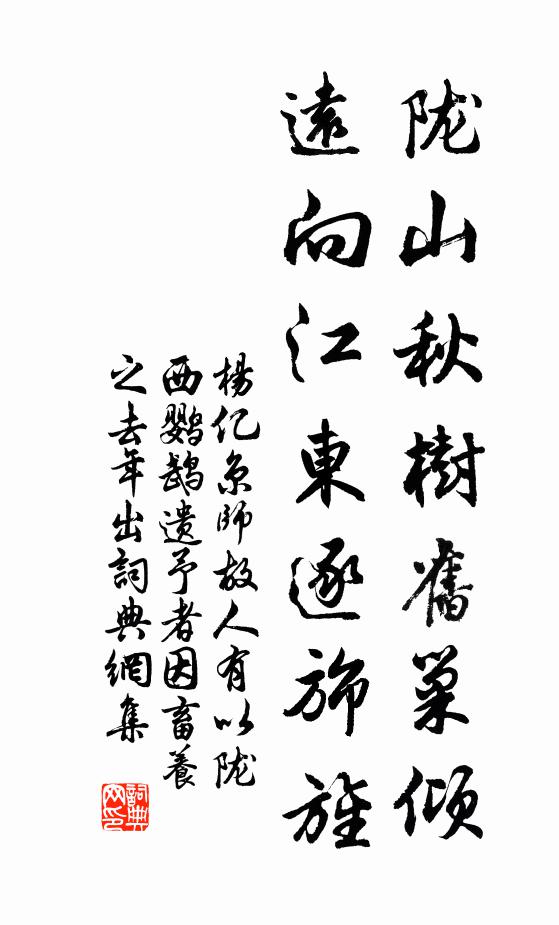 陇山秋樹舊巢倾
遠向江東逐旆旌
楊亿京師故人有以陇
西鹦鹉遗予者因畜養
之去年出詞典網集
詞典网印